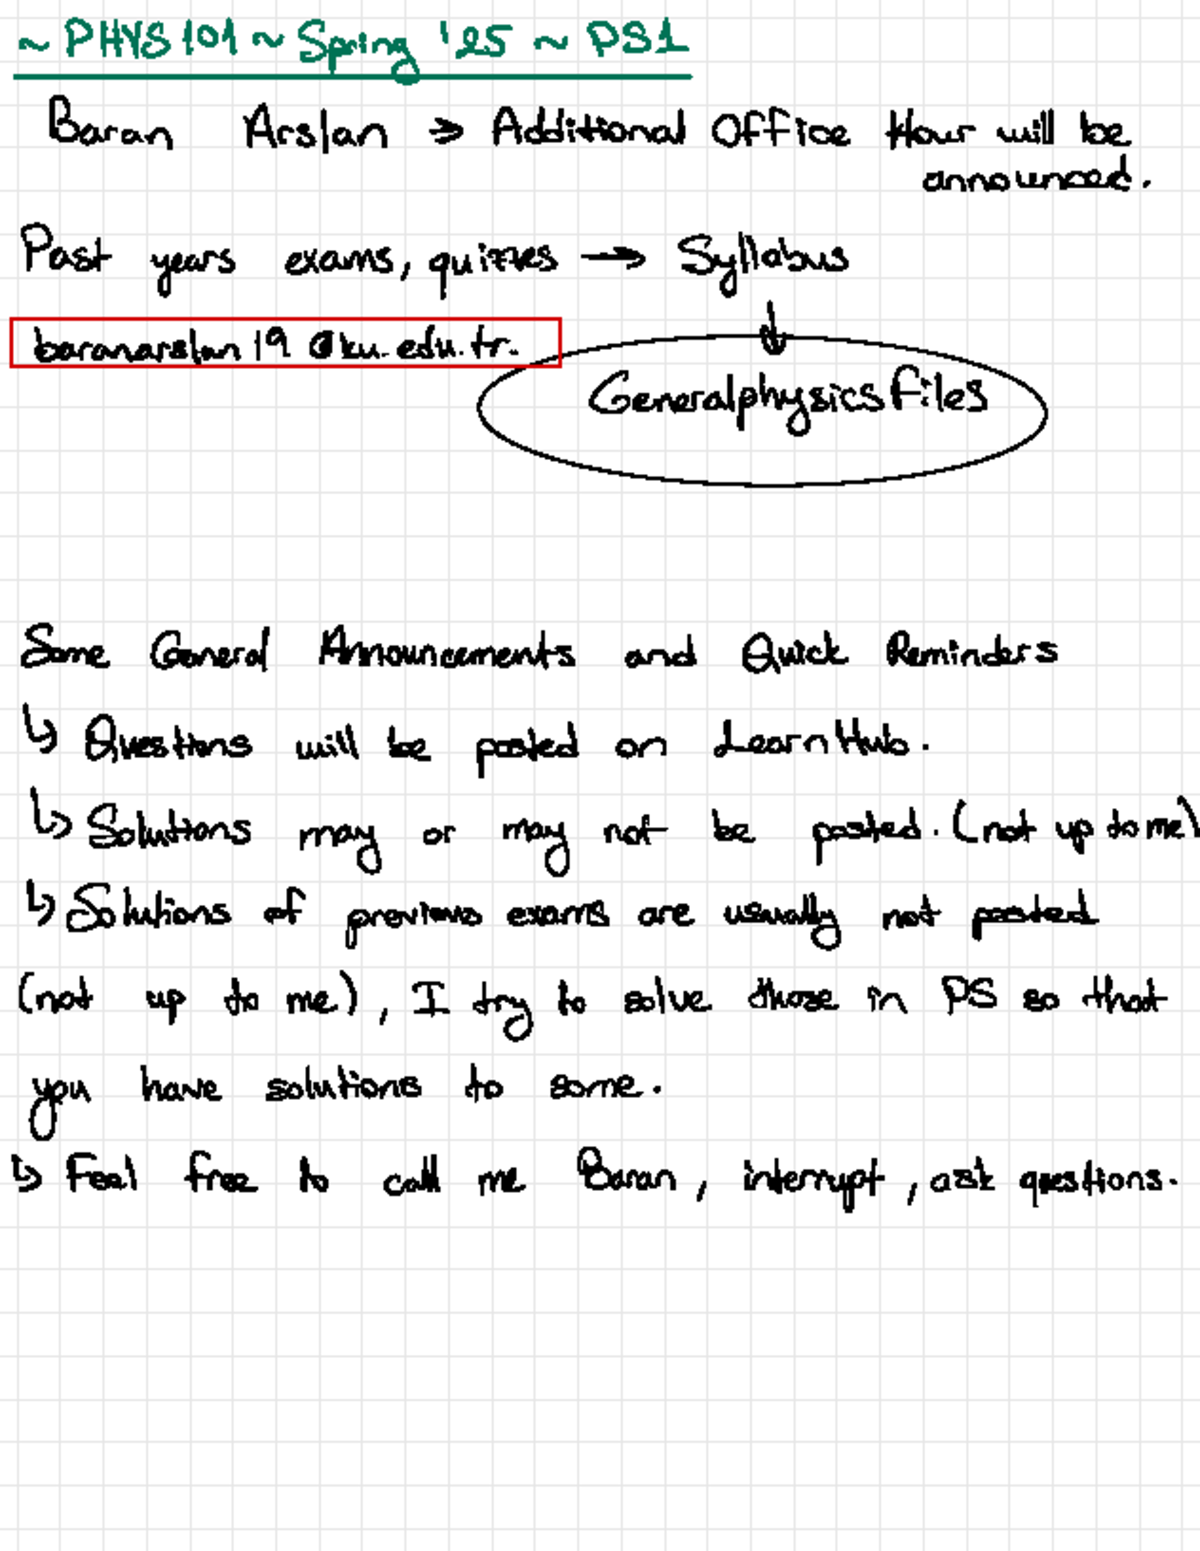 ~ PHYS 101 ~ Spring '25 ~ PS1
Baran Arslan → Additional Office Hour will be
announced.
Past years exams, quizzes → Syllabus
baranarslan19@ku.edu.tr.
Generalphysicsfiles
Some General Announcements and Quick Reminders
↳ Questions will be posted on LearnHub.
↳ Solutions may or may not be posted. (not up to me)
↳ Solutions of previous exams are usually not posted
(not up to me), I try to solve those in PS so that
you have solutions to some.
↳ Feel free to call me Baran, interrupt, ask questions.